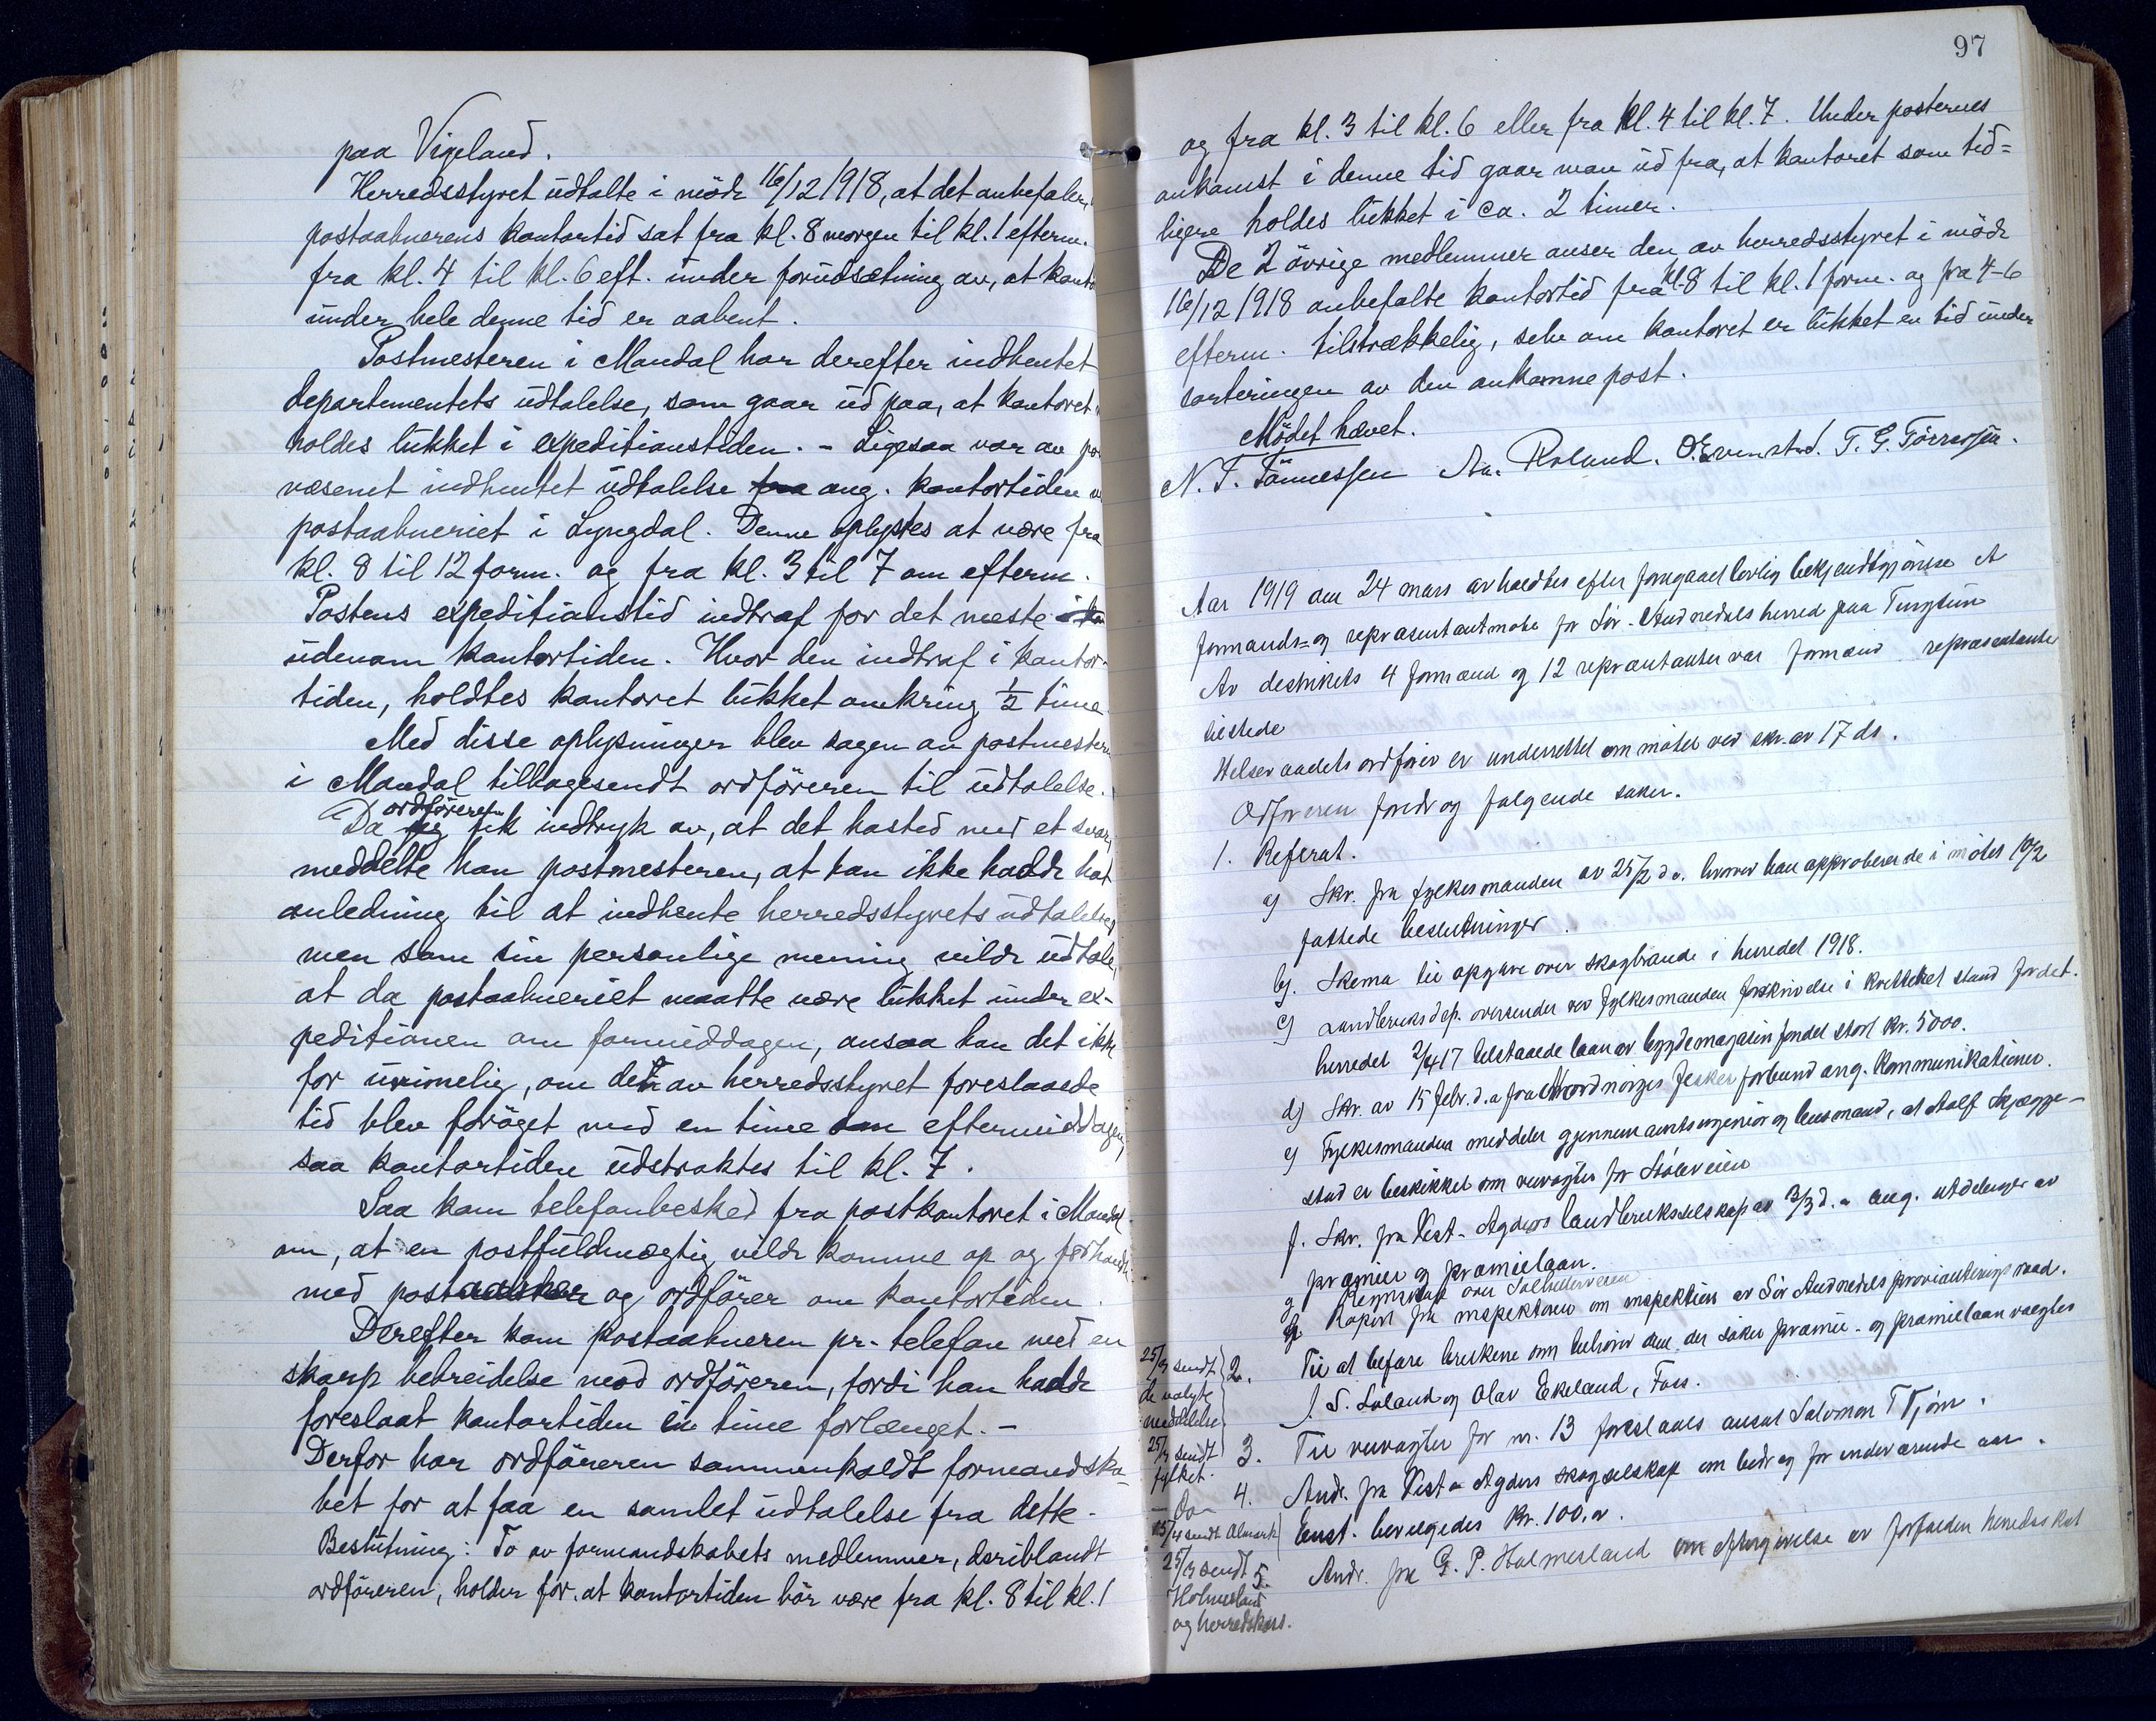 paa Vigeland.
Herredsstyret udtalte i möde 16/12 1918, at det anbefaler,
postaabnerens kontortid sat fra kl. 8 morgen til kl. 1 efterm.
fra kl. 4 til kl. 6 eft. under forudsætning av, at kont
under hele denne tid er aabent.
Postmesteren i Mandal har derefter indhentet
departementets udtalelse, som gaar ud paa, at kontoret
holdes lukket i expeditionstiden. - Ligesaa var av po
væsenet indhentet udtalelse fra ang. kontortiden v
postaabneriet i Lyngdal. Denne oplystes at være fra
kl. 8 til 12 form. og fra kl. 3 til 7 om efterm.
Postens expeditionstid indtraf for det meste
udenom kontortiden. Hvor den indtraf i kontor-
tiden, holdtes kontoret lukket omkring 1/2 time.
Med disse oplysninger blev sagen av postmesteren
i Mandal tilbagesendt ordföreren til udtalelse.
Da jeg ordföreren fik indtryk av, at det hasted med et svar,
meddelte han postmesteren, at han ikke hadde hat
anledning til at indhente herredsstyrets udtalelse,
men som sin personlige mening vilde udtale,
at da postaabneriet maatte være lukket under ex-
peditionen om formiddagen, ansaa han det ikke
for urimelig, om den av herredsstyret foreslaaede
tid blev foröget med en time om eftermiddagen,
saa kontortiden udstraktes til kl. 7.
Saa kom telefonbesked fra postkontoret i Mandal
om, at en postfuldmægtig vilde komme op og forhandle
med og ordförer om kontortiden.
Derefter kom postaabneren pr. telefon med en
skarp bebreidelse mod ordföreren, fordi han hadde
foreslaat kontortiden en time forlænget. -
Derfor har ordföreren sammenkaldt formandska-
bet for at faa en samlet udtalelse fra dette.
Beslutning: To av formandskabets medlemmer, deriblandt
ordföreren, holder for, at kontortiden bör være fra kl. 8 til kl. 1
97
og fra kl. 3 til kl. 6 eller fra kl. 4 til kl. 7. Under posternes
ankomst i denne tid gaar man ud fra, at kontoret som tid=
ligere holdes lukket i ca. 2 timer.
De 2 övrige medlemmer anser den av herredsstyret i möde
16/12 1918 anbefalte kontortid fra kl. 8 til kl. 1 form. og fra 4-6
efterm. tilstrækkelig, selv om kontoret er lukket en tid under
sorteringen av den ankomne post.
Mödet hævet.
N. T. Tönnessen Aa. Roland. O. Evenstad. T. G. Törressen.
Aar 1919 den 24 mars avholdtes efter foregaaet lovlig bekjendtgjörelse
formands- og repræsentantmöte for Sör-Audnedals herred paa Tungtun
Av destriktets 4 formænd og 12 repræsentanter var formænd repræsentanter
tilstede
Helseraadets ordförer er underrettet om mötet ved skr. av 17 ds.
Ordföreren foredrog fölgende saker.
1. Referat.
a) Skr. fra fylkesmanden av 25/2 d.a. hvorved han approberer de i mötet 10/2
fattede beslutninger.
b). Skema til opgave over skogbrande i herredet 1918.
c) Landbruksdep. oversender ved fylkesmanden forskrivelse i kvitteket stand for det
herredet 2/4 17 tilstaaede laan av bygdemagasinfondet stort kr. 5000.
d) Skr. av 15 febr. d.a. fra Nordnorges fiskerforbund ang. kommunikationer.
e) Fylkesmanden meddeler gjennem amtsingeniör og lensmand, at Adolf Skjægge-
stad er beskikket som veivogter for Stöleveien
f. Skr. fra Vest-Agders landbruksselskap av 3/3 d.a. ang. utdelinger av
præmier og præmielaan.
g Regnskap over
h. Raport fra inspektören om inspektion av Sör Audnedals provianteringsraad.
25/3 sendt
de valgte
meddelelse
2. Til at befare bruk som behöver den der söker præmie- og præmielaan valgtes
J. S. Loland og Olav Ekeland, Foss.
25/3 sendt
fylket.
3. Til veivogter for nr. 13 foreslaaes ansat Salomon T Tjöm.
Do
4. Andr. fra Vest-Agders skogselskap om bidrag for indeværende aar.
Enst. bevilgedes kr. 100,00.
25/3 sendt
Holmesland
og herredskass.
5. Andr. fra G. P. Holmesland om eftergivelse av forfalden herredsskat